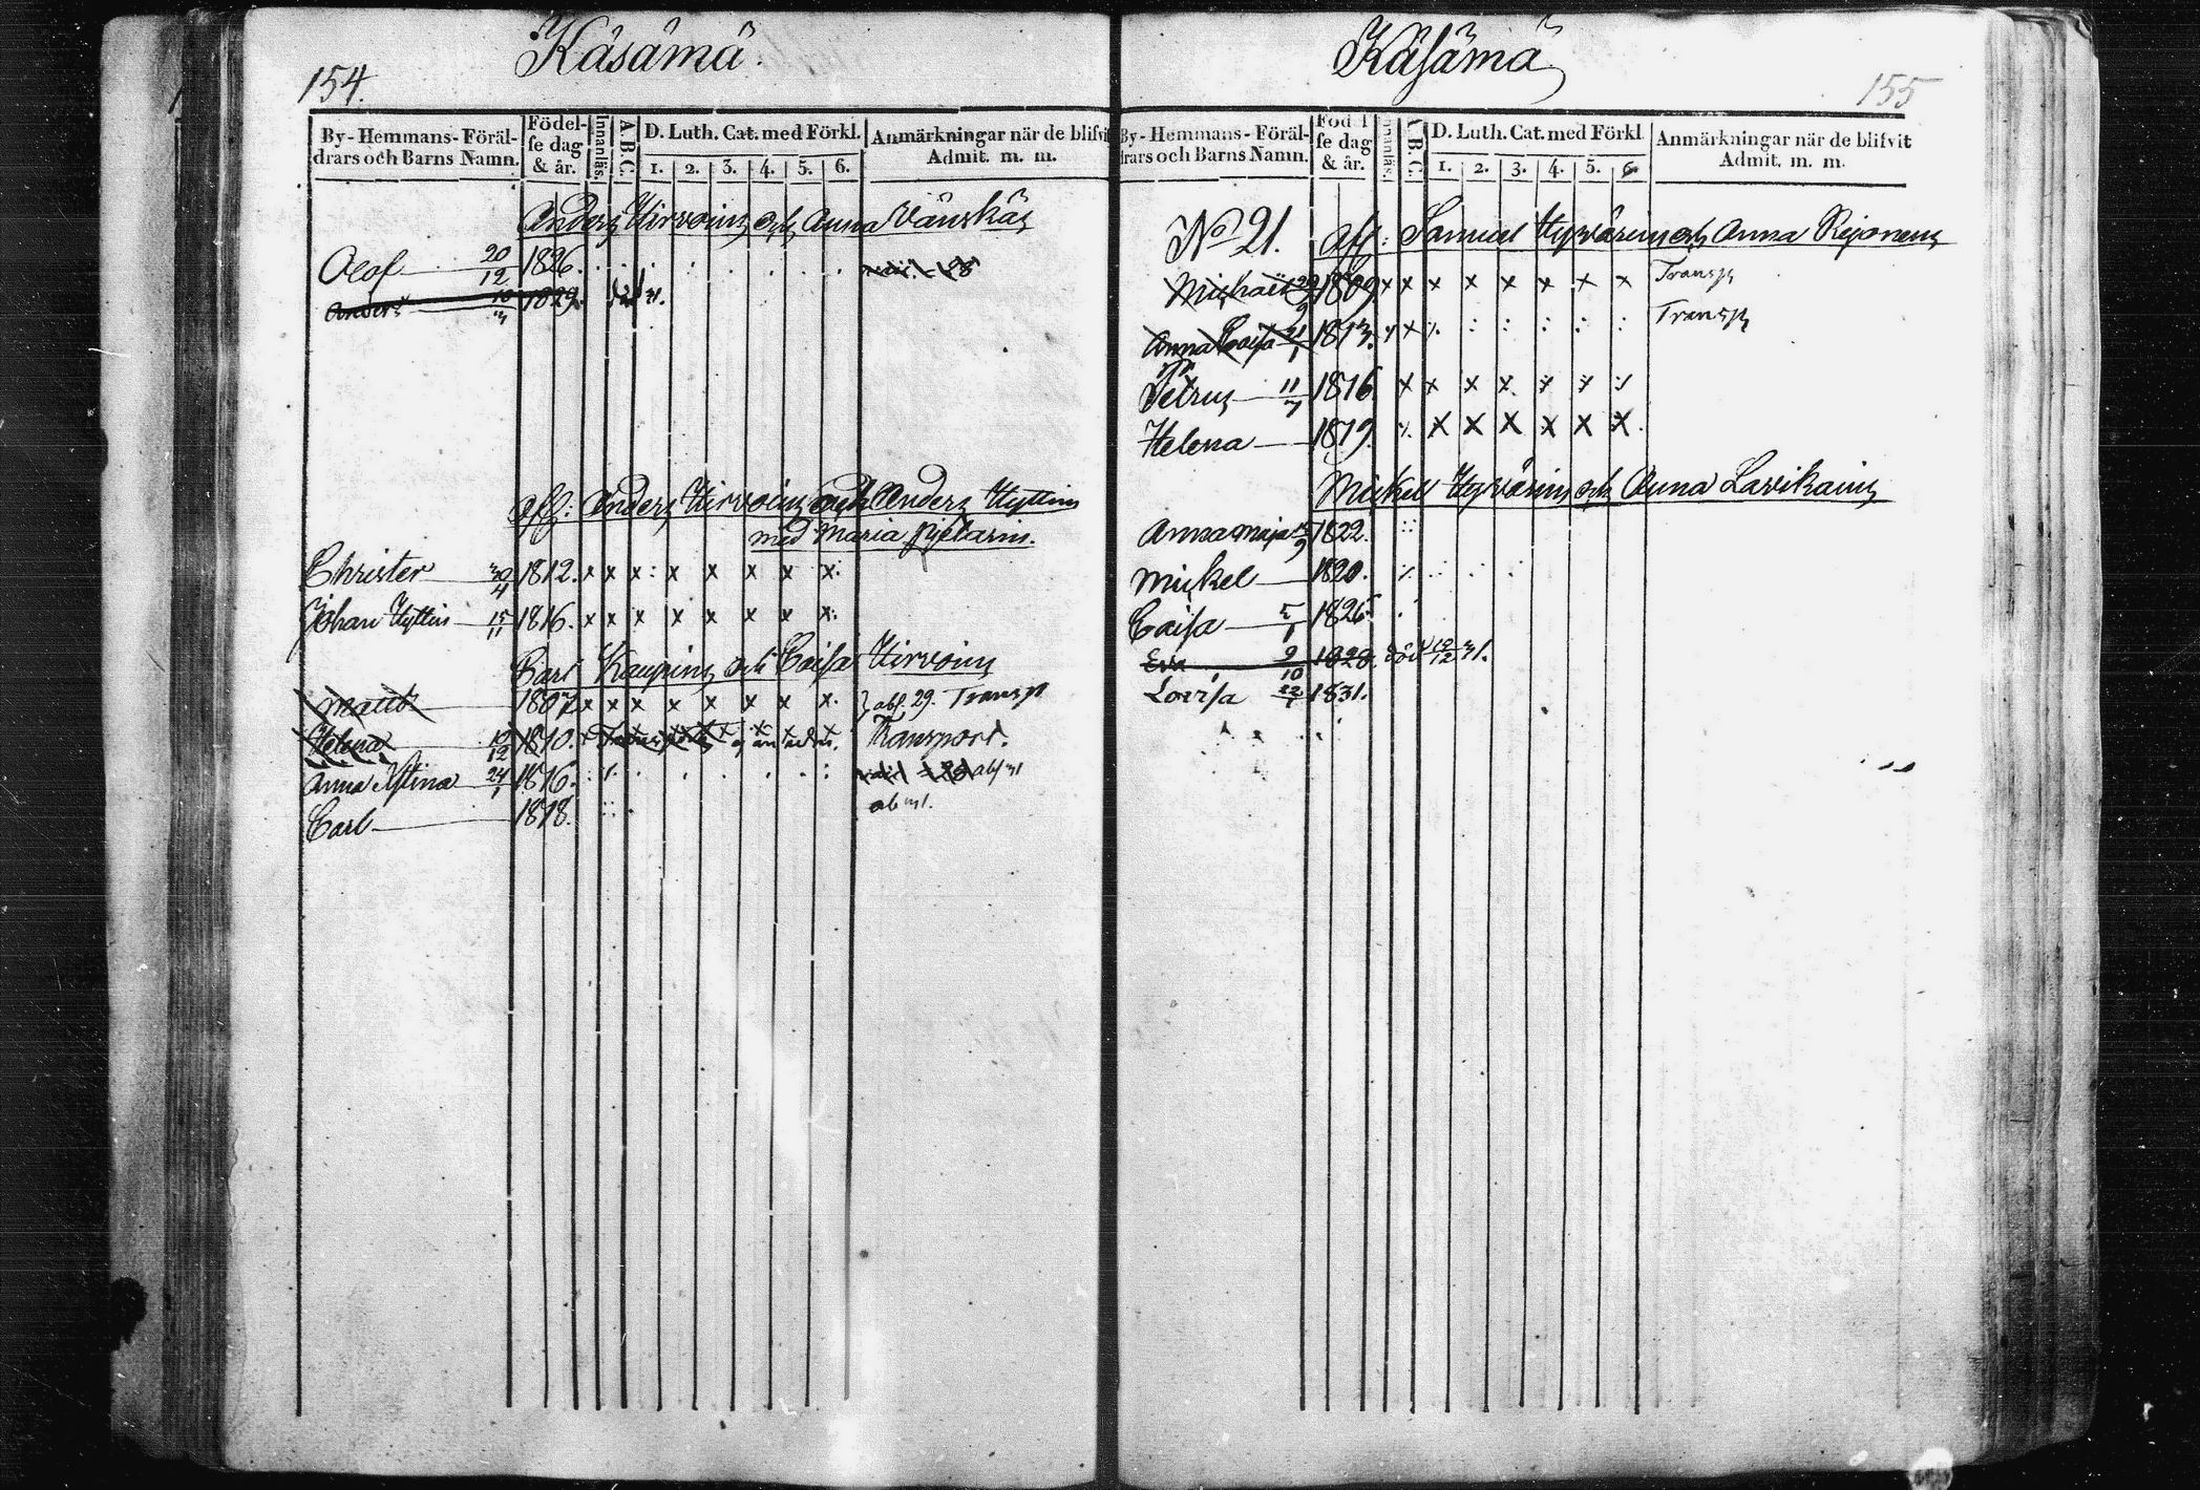 154. Käsämä.
By-Hemmans-Föräl- drars och Barns Namn. Födel- se dag & år. Innanläs. A.B.C. D. Luth. Cat. med Förkl. 1. 2. 3. 4. 5. 6. Anmärkningar när de blifvit Admit. m. m.
Anders Hirvoins och Anna Vänskäs
Olof 20/12 1826.
Anders 10/3 1829. död 31.
aff: Anders Hirvoins och Anders Hyttins
med Maria
Christer 30/4 1812. x x x: x x x x x:
Johan Hyttin 15/11 1816. x x x x x x x x:
Carl Kaupins och Caisa Hirvoins
Matts 1807 x x x x x x x x. } abs. 29. Transp
Helena 12/12 1810. x Transport.
Anna Stina 24/1 1816. abs 31
Carl 1818. ab 31.
Käsämä 155
By-Hemmans-Föräl- drars och Barns Namn. Föd l se dag & år. nnanläs. A.B.C. D. Luth. Cat. med Förkl 1. 2. 3. 4. 5. 6. Anmärkningar när de blifvit Admit. m. m.
No 21. aff: Samuel Hyvärins och Anna Reijonens
Michaël 29/9 1809 x x x x x x x x Transp
Anna Caisa 21/1 1813. Transp
Petrus 11/7 1816 x x x x x x x
Helena 1819. x x x x x x x.
Mickel Hyvärins och Anna Lavikains
Anna Maja 1822.
Mickel 1820.
Caisa 5/1 1826.
Eva 9/10 1828. död 12/12 31.
Lovisa 22/1 1831.